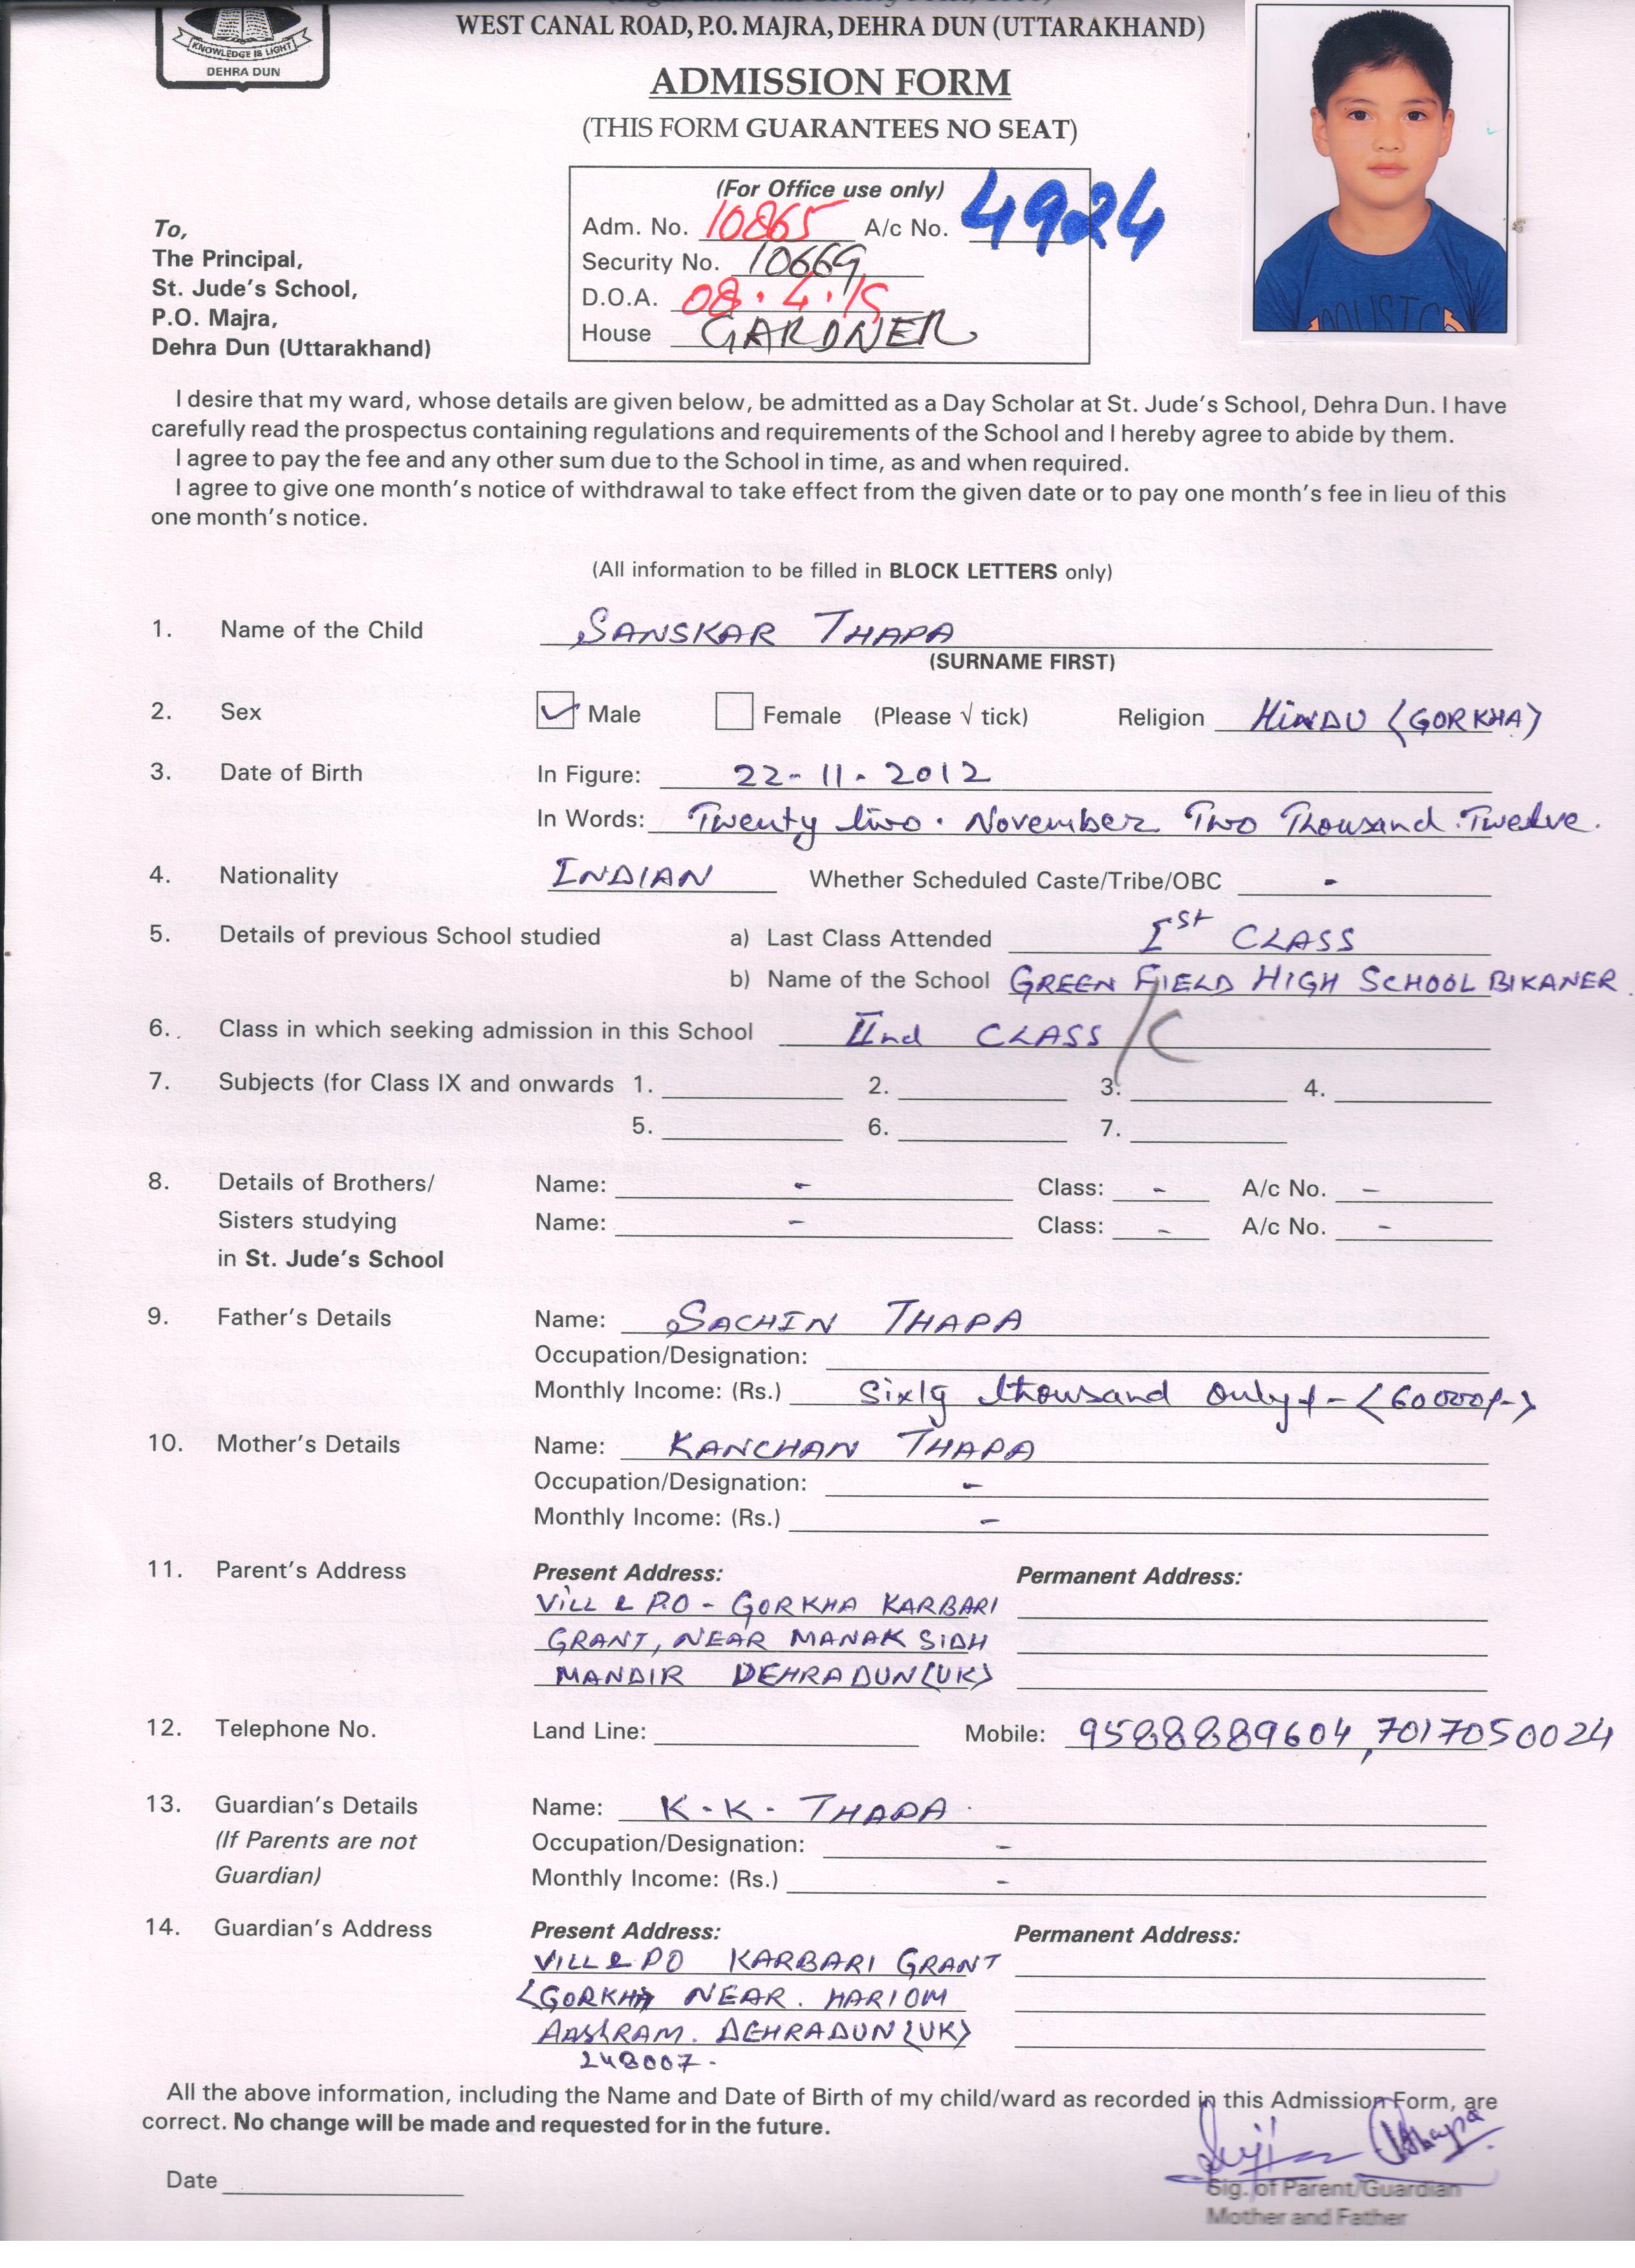 KNOWLEDGE IS LIGHT
DEHRA DUN
WEST CANAL ROAD, P.O. MAJRA, DEHRA DUN (UTTARAKHAND)
ADMISSION FORM
(THIS FORM GUARANTEES NO SEAT)
(For Office use only)
Adm. No. 10865 A/c No. 4924
Security No. 10669
D.O.A. 08.4.15
House GARDNER
To,
The Principal,
St. Jude's School,
P.O. Majra,
Dehra Dun (Uttarakhand)
I desire that my ward, whose details are given below, be admitted as a Day Scholar at St. Jude's School, Dehra Dun. I have
carefully read the prospectus containing regulations and requirements of the School and I hereby agree to abide by them.
I agree to pay the fee and any other sum due to the School in time, as and when required.
I agree to give one month's notice of withdrawal to take effect from the given date or to pay one month's fee in lieu of this
one month's notice.
(All information to be filled in BLOCK LETTERS only)
1. Name of the Child SANSKAR THAPA
(SURNAME FIRST)
2. Sex ✓ Male Female (Please √ tick) Religion HINDU (GORKHA)
3. Date of Birth In Figure: 22-11-2012
In Words: Twenty two. November Two Thousand Twelve.
4. Nationality INDIAN Whether Scheduled Caste/Tribe/OBC -
5. Details of previous School studied a) Last Class Attended Ist CLASS
b) Name of the School GREEN FIELD HIGH SCHOOL BIKANER.
6. Class in which seeking admission in this School IInd CLASS /C
7. Subjects (for Class IX and onwards 1. 2. 3. 4.
5. 6. 7.
8. Details of Brothers/ Name: - Class: - A/c No. -
Sisters studying Name: - Class: - A/c No. -
in St. Jude's School
9. Father's Details Name: SACHIN THAPA
Occupation/Designation:
Monthly Income: (Rs.) Sixty thousand only/- (60000/-)
10. Mother's Details Name: KANCHAN THAPA
Occupation/Designation: -
Monthly Income: (Rs.) -
11. Parent's Address Present Address: Permanent Address:
VILL & P.O - GORKHA KARBARI
GRANT, NEAR MANAK SIDH
MANDIR DEHRADUN(UK)
12. Telephone No. Land Line: Mobile: 9588889604, 7017050024
13. Guardian's Details Name: K.K. THAPA
(If Parents are not Occupation/Designation: -
Guardian) Monthly Income: (Rs.) -
14. Guardian's Address Present Address: Permanent Address:
VILL & PO KARBARI GRANT
(GORKHA NEAR. HARIOM
AASHRAM. DEHRADUN(UK)
248007.
All the above information, including the Name and Date of Birth of my child/ward as recorded in this Admission Form, are
correct. No change will be made and requested for in the future.
Thapa
Date Sig. of Parent/Guardian
Mother and Father